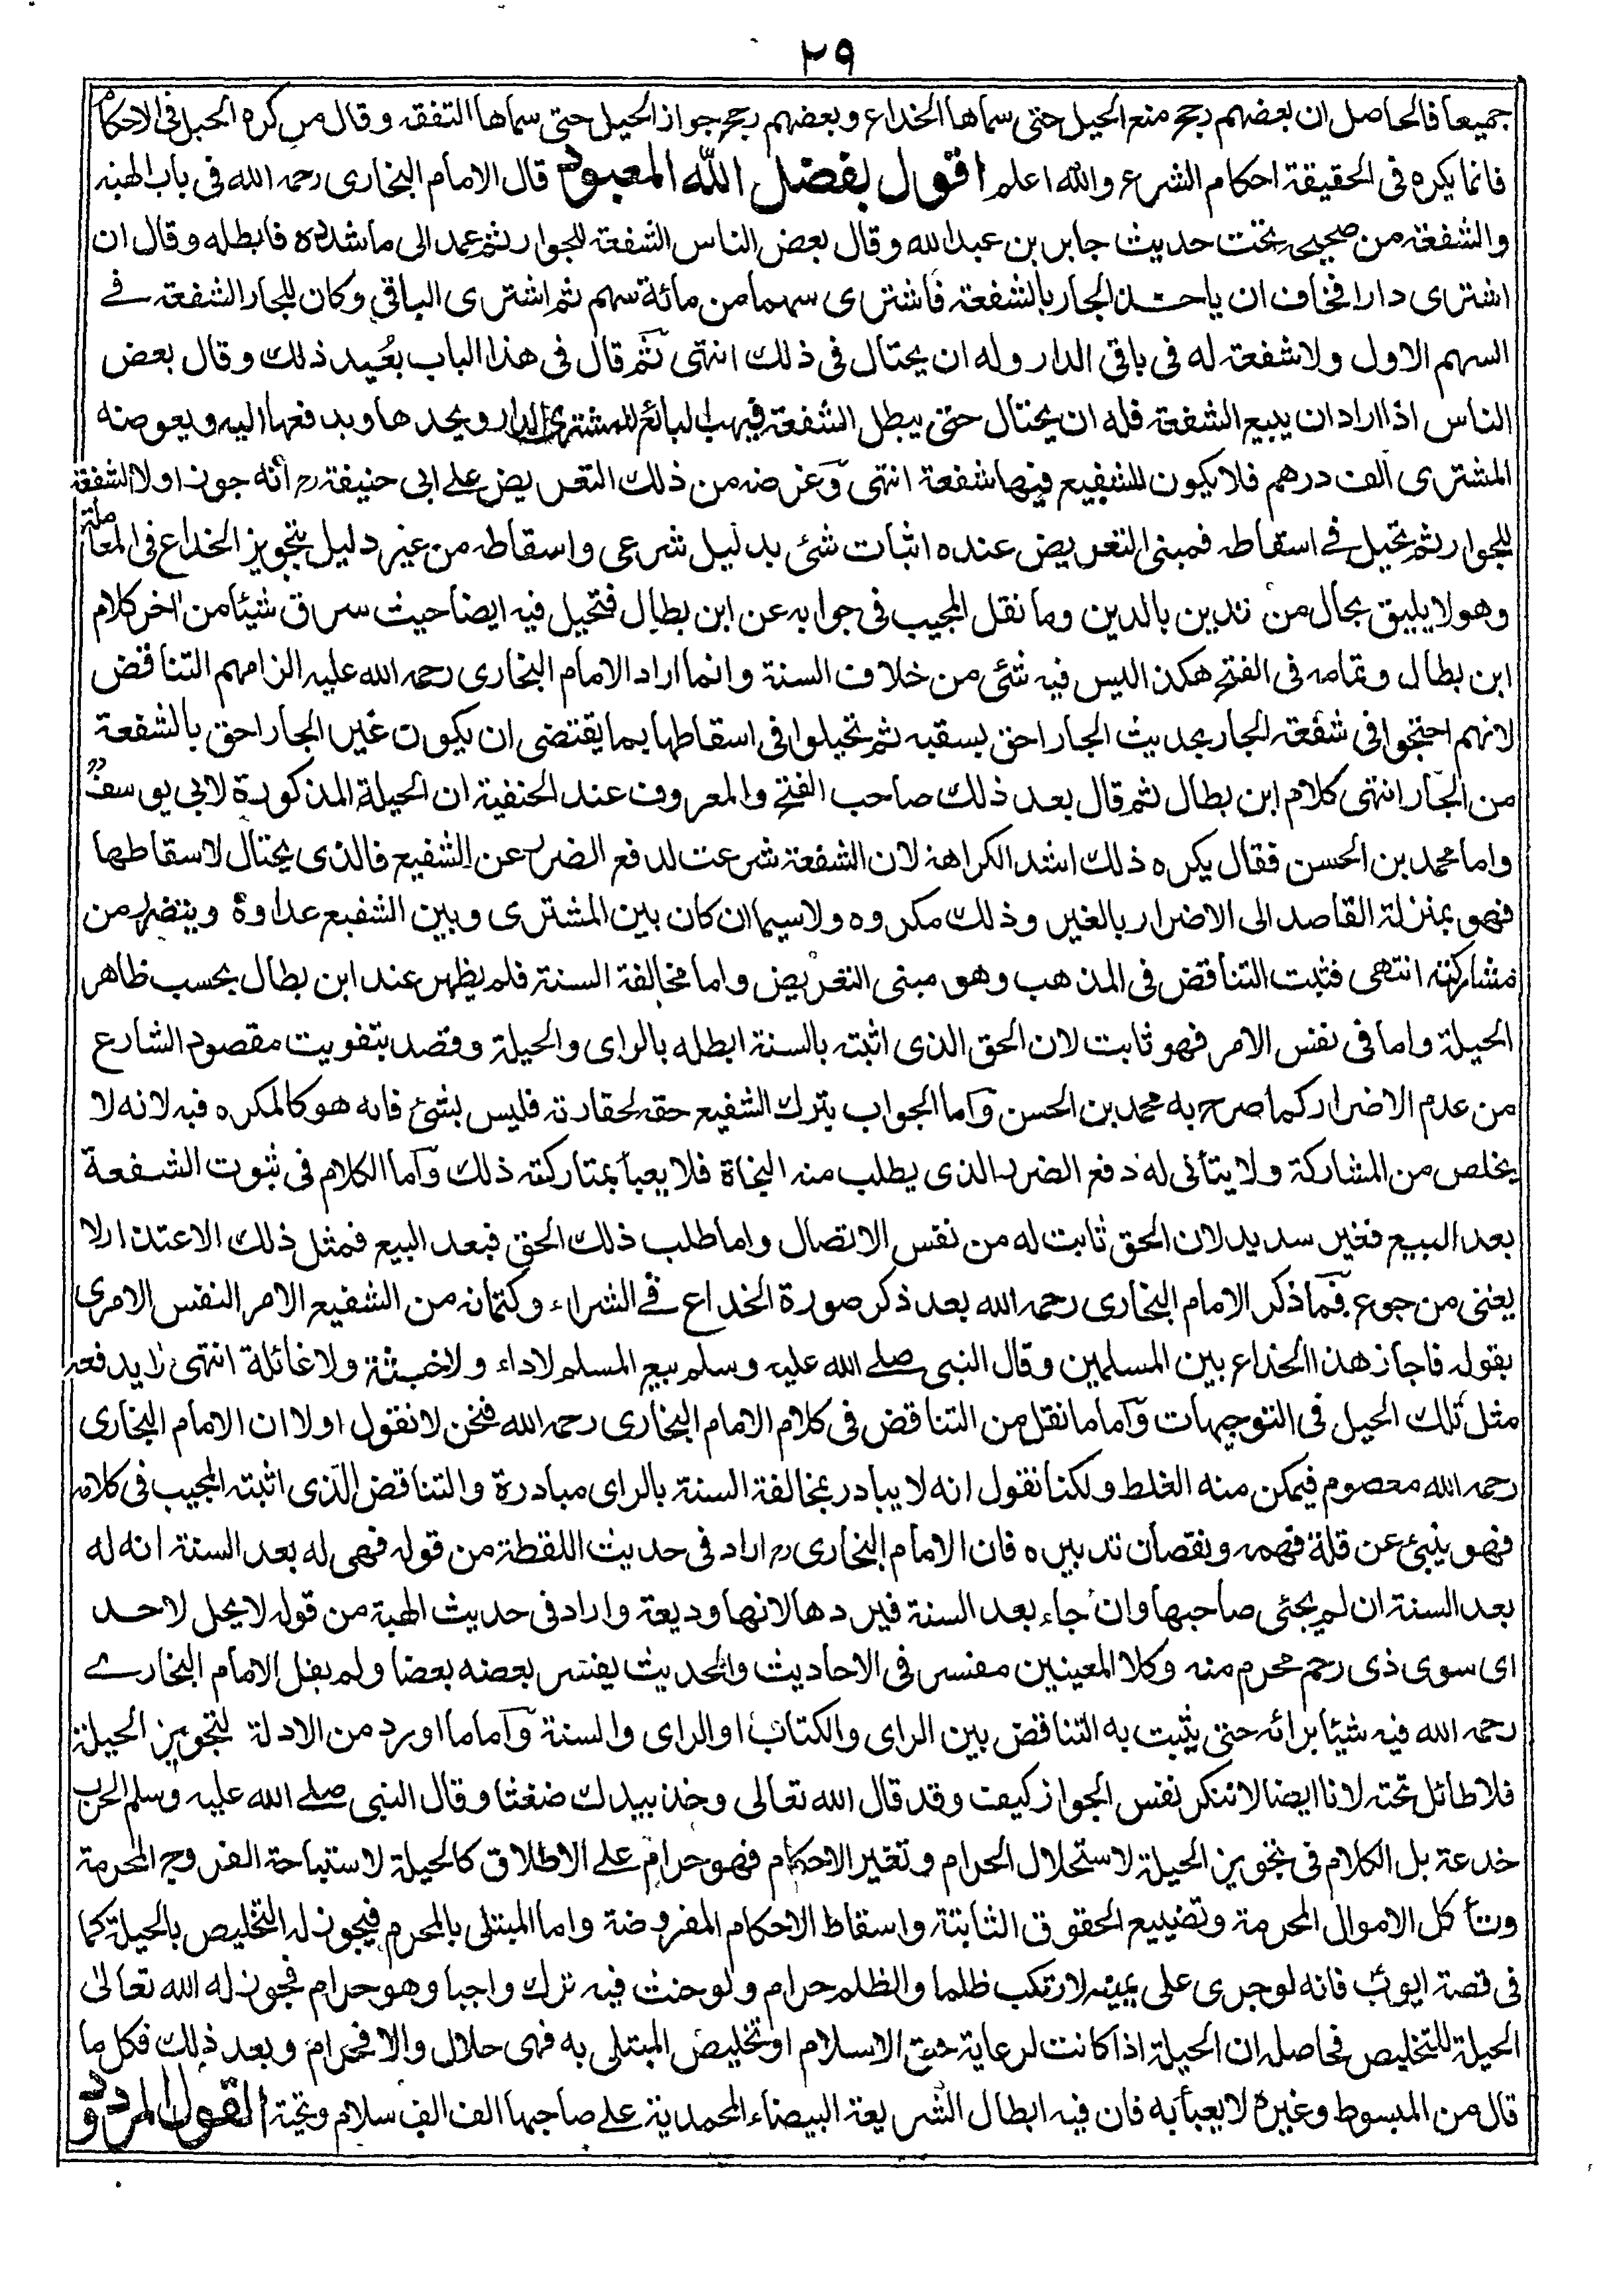 ٢٩
جميعا فالحاصل ان بعضهم رجح منع الحيل حتى سماها الخداع وبعضهم رجح جواز الحيل حتى سماها التفقه وقال من كره الحيل فى الاحكام
فانما يكره فى الحقيقة احكام الشرع والله اعلم اقول بفضل الله المعبود قال الامام البخارى رحمه الله فى باب الهبة
والشفعة من صحيحه تحت حديث جابر بن عبد الله وقال بعض الناس الشفعة للجوار ثم عمد الى ما شدده فابطله وقال ان
اشترى دارا فخاف ان ياخذ الجار بالشفعة فاشترى سهما من مائة سهم ثم اشترى الباقى وكان للجار الشفعة فے
السهم الاول ولا شفعة له فى باقى الدار وله ان يحتال فى ذلك انتهى ثم قال فى هذا الباب بعيد ذلك وقال بعض
الناس اذا اراد ان يبيع الشفعة فله ان يحتال حتى يبطل الشفعة فيهب البائع للمشترى الدار ويحدها ويدفعها اليه ويعوضه
المشترى الف درهم فلا يكون للشفيع فيها شفعة انتهى وغرضه من ذلك التعريض علے ابى حنيفةؒ انه جوز اولا الشفعة
للجوار ثم تحيل فے اسقاطه فمبنى التعريض عنده اثبات شئ بدليل شرعى واسقاطه من غير دليل بتجويز الخداع فى المعاملة
وهو لا يليق بحال من تدين بالدين وما نقل المجيب فى جوابه عن ابن بطال فتحيل فيه ايضا حيث سرق شيئا من اخر كلام
ابن بطال وتمامه فى الفتح هكذا ليس فيه شئ من خلاف السنة وانما اراد الامام البخارى رحمة الله عليه الزامهم التناقض
لانهم احتجوا فى شفعة الجار بحديث الجار احق بسقبه ثم تحيلوا فى اسقاطها بما يقتضى ان يكون غير الجار احق بالشفعة
من الجار انتهى كلام ابن بطال ثم قال بعد ذلك صاحب الفتح والمعروف عند الحنفية ان الحيلة المذكورة لابى يوسفؒ
واما محمد بن الحسن فقال يكره ذلك اشد الكراهة لان الشفعة شرعت لدفع الضرر عن الشفيع فالذى يحتال لاسقاطها
فهو بمنزلة القاصد الى الاضرار بالغير وذلك مكروه ولا سيما ان كان بين المشترى وبين الشفيع عداوة ويتضرر من
مشاركته انتهى فثبت التناقض فى المذهب وهو مبنى التعريض واما مخالفة السنة فلم يظهر عند ابن بطال بحسب ظاهر
الحيلة واما فى نفس الامر فهو ثابت لان الحق الذى اثبته بالسنة ابطله بالراى والحيلة وقصد بتفويت مقصود الشارع
من عدم الاضرار كما صرح به محمد بن الحسن واما الجواب بترك الشفيع حقه لحقارته فليس بشئ فانه هو كالمكره فيه لانه لا
يخلص من المشاركة ولا يتأتى له دفع الضرر الذى يطلب منه النجاة فلا يعبأ بمتاركته ذلك واما الكلام فى ثبوت الشفعة
بعد البيع فغير سديد لان الحق ثابت له من نفس الاتصال واما طلب ذلك الحق فبعد البيع فمثل ذلك الاعتذار لا
يغنى من جوع فما ذكر الامام البخارى رحمه الله بعد ذكر صورة الخداع فى الشراء وكتمانه من الشفيع الامر النفس الامرى
بقوله فاجاز هذا الخداع بين المسلمين وقال النبى صلے الله عليه وسلم بيع المسلم لا داء ولا خبثة ولا غائلة انتهى لا يدفعه
مثل تلك الحيل فى التوجيهات واما ما نقل من التناقض فى كلام الامام البخارى رحمه الله فنحن لا نقول اولا ان الامام البخارى
رحمه الله معصوم فيمكن منه الغلط ولكنا نقول انه لا يبادر بمخالفة السنة بالراى مبادرة والتناقض الذى اثبته المجيب فى كلامه
فهو ينبئ عن قلة فهمه ونقصان تدبيره فان الامام البخارىؒ اراد فى حديث اللقطة من قوله فهى له بعد السنة انه له
بعد السنة ان لم يجئ صاحبها وان جاء بعد السنة فيردها لانها وديعة واراد فى حديث الهبة من قوله لا يحل لاحد
اى سوى ذى رحم محرم منه وكلا المعنيين مفسر فى الاحاديث والحديث يفسر بعضه بعضا ولم يقل الامام البخارے
رحمه الله فيه شيئا برائه حتى يثبت به التناقض بين الراى والكتاب او الراى والسنة واما ما اورد من الادلة لتجويز الحيلة
فلا طائل تحته لانا ايضا لا ننكر نفس الجواز كيف وقد قال الله تعالى وخذ بيدك ضغثا وقال النبى صلے الله عليه وسلم الحرب
خدعة بل الكلام فى تجويز الحيلة لاستحلال الحرام وتغير الاحكام فهو حرام علے الاطلاق كالحيلة لاستباحة الفروج المحرمة
وتأكل الاموال المحرمة وتضييع الحقوق الثابتة واسقاط الاحكام المفروضة واما المبتلى بالمحرم فيجوز له التخليص بالحيلة كما
فى قصة ايوبؑ فانه لو جرى على يمينه لارتكب ظلما والظلم حرام ولو حنث فيه ترك واجبا وهو حرام فجوز له الله تعالى
الحيلة للتخليص فحاصله ان الحيلة اذا كانت لرعاية حق الاسلام او تخليص المبتلى به فهى حلال والا فحرام وبعد ذلك فكل ما
قال من المبسوط وغيره لا يعبأ به فان فيه ابطال الشريعة البيضاء المحمدية علے صاحبها الف الف سلام وتحية القول المردود